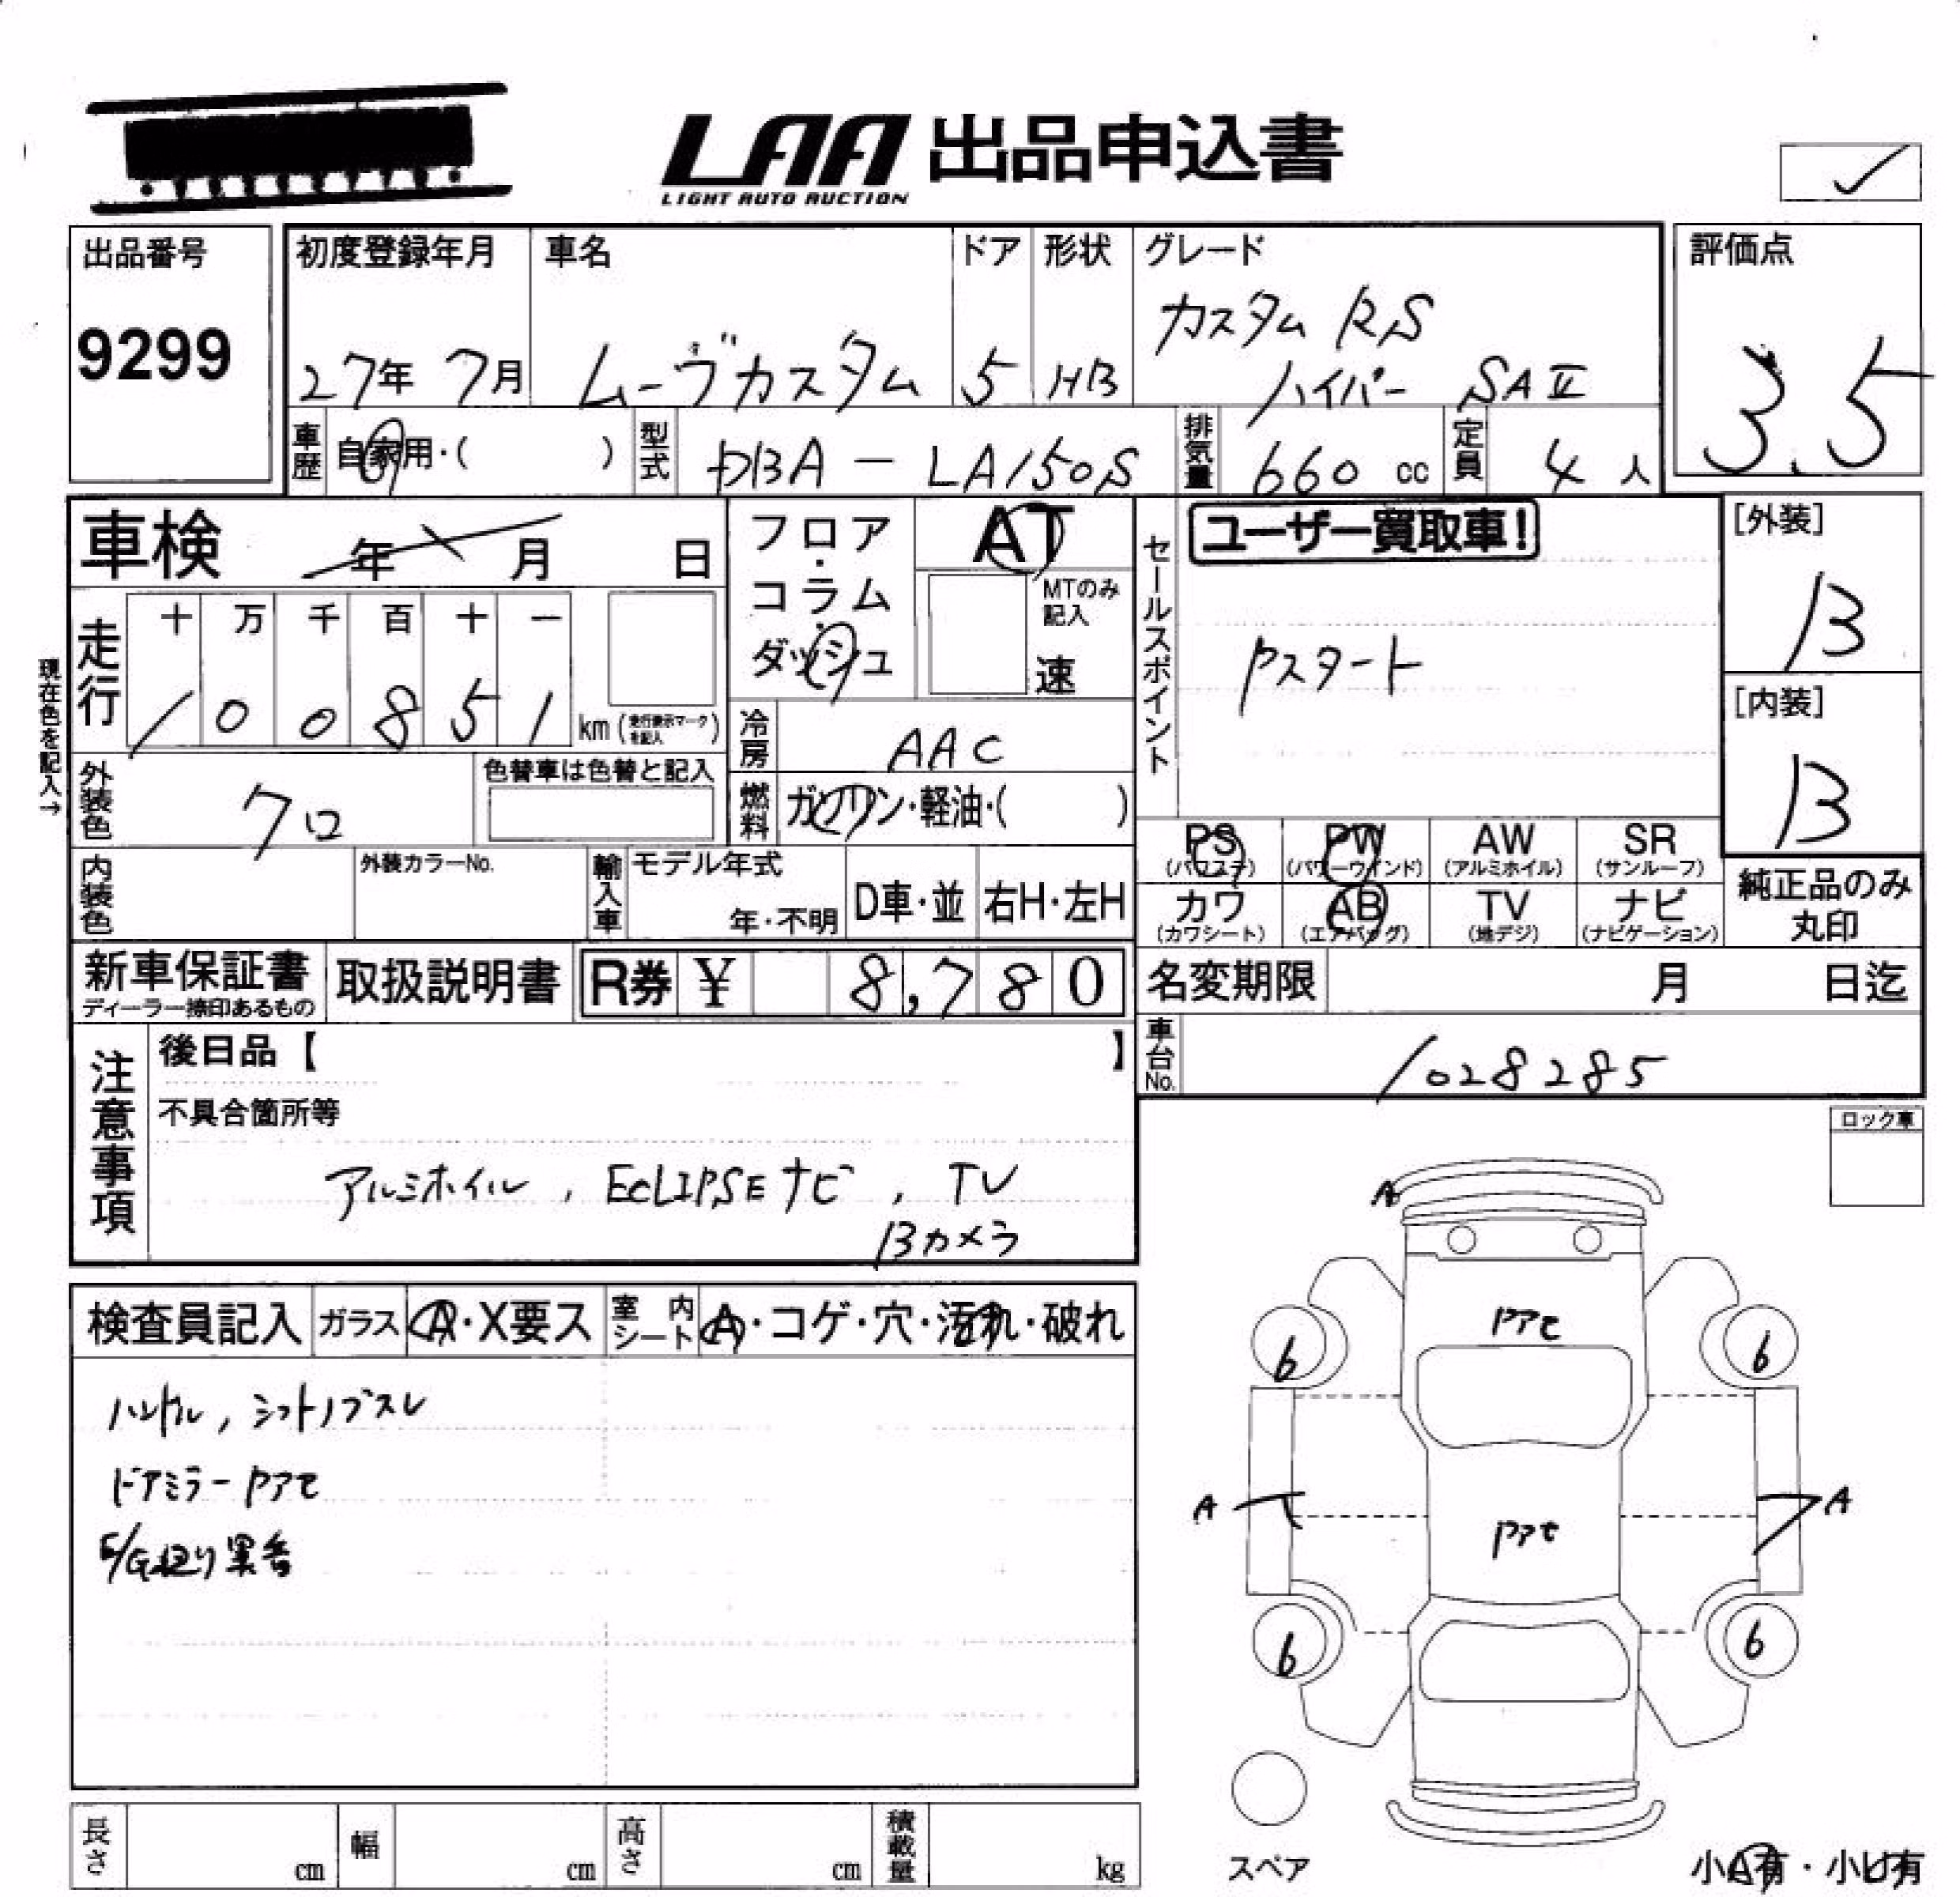 LAA 出品申込書
LIGHT AUTO AUCTION
出品番号
9299
初度登録年月
27年 7月
車名
ムーヴカスタム
ドア
5
形状
HB
グレード
カスタム RS
ハイパー SAⅡ
評価点
3.5
車歴
自家用・( )
型式
DBA - LA150S
排気量
660 cc
定員
4 人
車検 年 月 日
フロア・コラム・ダッシュ
AT
MTのみ記入
速
セールスポイント
ユーザー買取車!
Pスタート
[外装]
B
[内装]
B
現在色を記入→
走行
十 万 千 百 十 一
1 0 0 8 5 1 km (走行表示マークを記入)
冷房
AAC
外装色
クロ
色替車は色替と記入
燃料
ガソリン・軽油・( )
PS (パワステ)
PW (パワーウインド)
AW (アルミホイル)
SR (サンルーフ)
カワ (カワシート)
AB (エアバッグ)
TV (地デジ)
ナビ (ナビゲーション)
純正品のみ丸印
内装色
外装カラーNo.
輸入車
モデル年式
年・不明
D車・並
右H・左H
新車保証書
ディーラー捺印あるもの
取扱説明書
R券 ¥ 8,780
名変期限 月 日迄
車台No.
1028285
注意事項
後日品【 】
不具合箇所等
アルミホイル, ECLIPSEナビ, TV
Bカメラ
ロック車
検査員記入
ガラス
A・X要ス
室内シート
A・コゲ・穴・汚れ・破れ
ハンドル, シフトノブスレ
ドアミラーPアセ
E/G廻り異音
A
Pアセ
6
6
A
Pアセ
A
6
6
スペア
小A有・小U有
長さ cm
幅 cm
高さ cm
積載量 kg